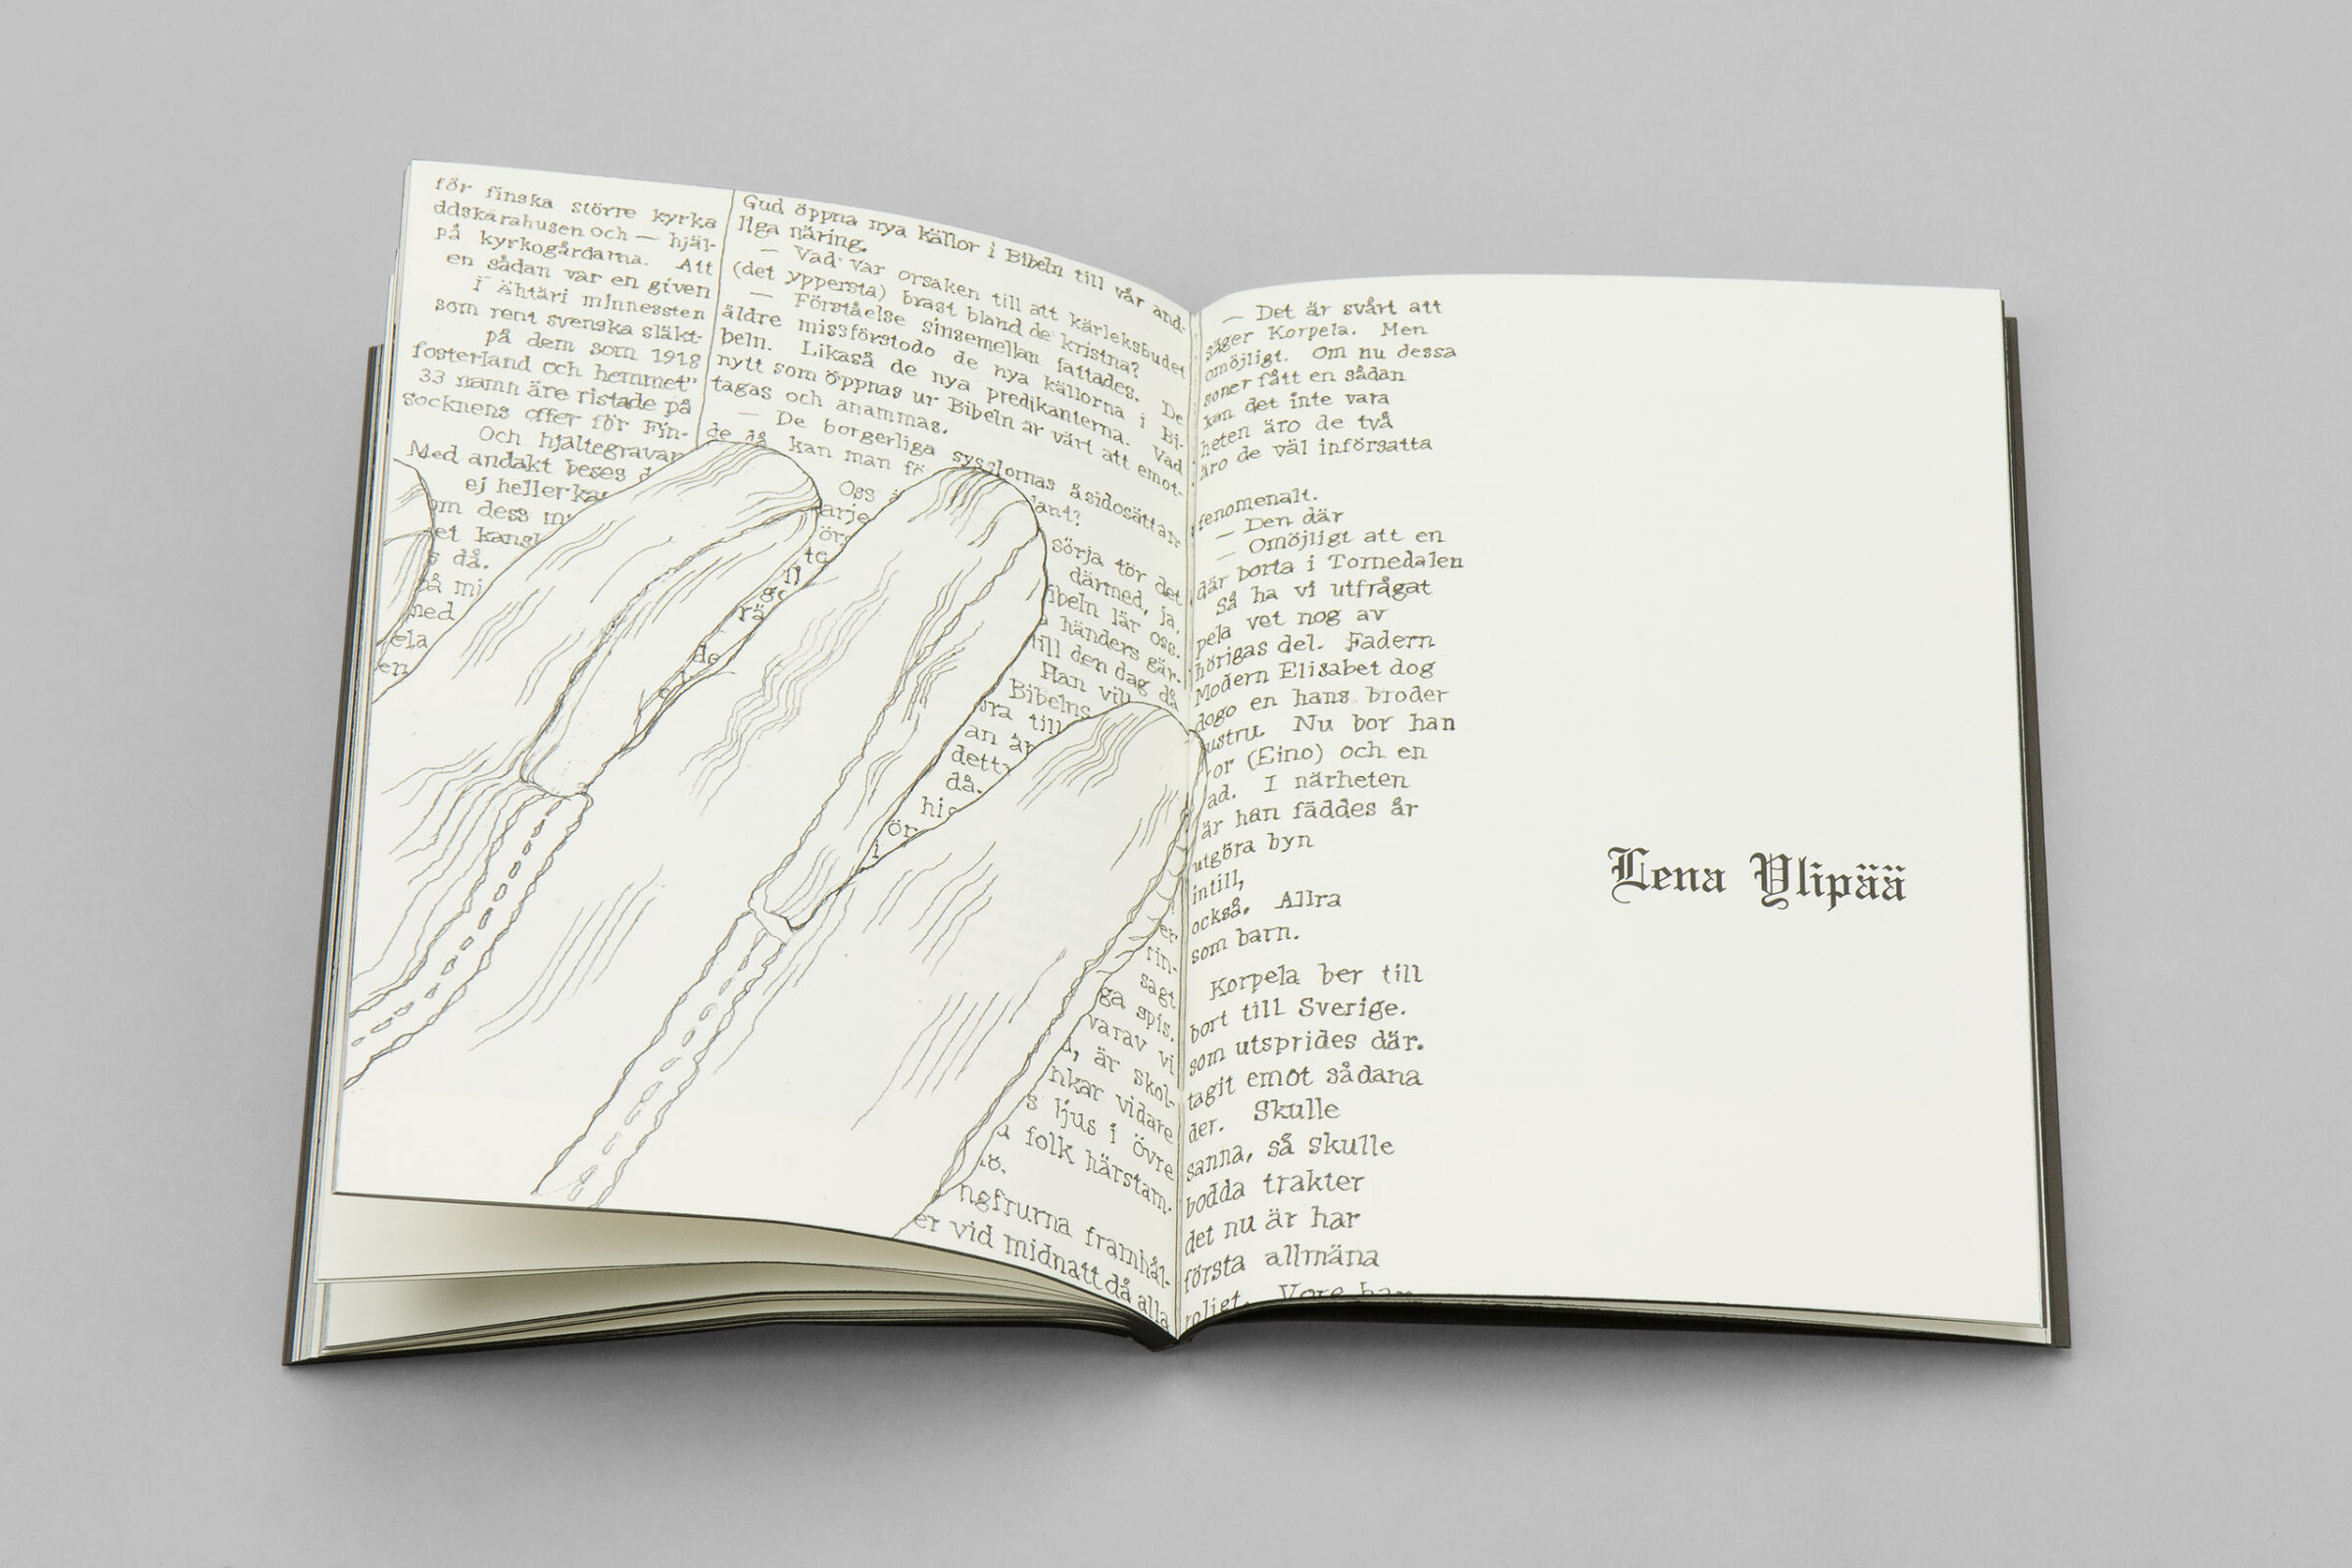 för finska större kyrka
ddskärahusen och — hjäl-
på kyrkogårdarna. Att
en sådan var en given
I Ähtäri minnessten
som rent svenska släkt-
på dem som 1918
fosterland och hemmet"
33 namn äre ristade på
socknens offer för Fin-
Och hjältegravar
Med andakt beses d
ej heller ka
om dess m
et kansk
s då.
så mi
med
ela
en
Gud öppna nya källor i Bibeln till vår and-
liga näring.
— Vad var orsaken till att kärleksbudet
(det yppersta) brast bland de kristna?
— Förståelse sinsemellan fattades. De
äldre missförstodo de nya källorna i Bi-
beln. Likaså de nya predikanterna. Vad
nytt som öppnas ur Bibeln är värt att emot-
tagas och anammas.
— De borgerliga sysslornas åsidosättan
de då kan man fö
Oss ä
lant?
arje
ör
te
ll
ge
rä
de
sörja för det
därmed, ja.
ibeln lär oss.
a händers gär-
till den dag då
Han vill
Bibelns
ora till
an är
dett
då.
hic
ör
i
er
rin-
sagt
ga spis.
varav vi
, är skol-
nkar vidare
s ljus i Övre
a folk härstam-
.ö.
ngfrurna framhål-
er vid midnatt då alla
— Det är svårt att
säger Korpela. Men
omöjligt. Om nu dessa
soner fått en sådan
kan det inte vara
heten äro de två
äro de väl införsatta
fenomenalt.
— Den där
— Omöjligt att en
där borta i Tornedalen
Så ha vi utfrågat
pela vet nog av
hörigas del. Fadern
Modern Elisabet dog
dogo en hans broder
ustru. Nu bor han
or (Eino) och en
ad. I närheten
är han fäddes år
utgöra byn
intill,
också. Allra
som barn.
Korpela ber till
bort till Sverige.
som utsprides där.
tagit emot sådana
der. Skulle
sanna, så skulle
bodda trakter
det nu är har
första allmäna
roligt. Vore han
Lena Ylipää